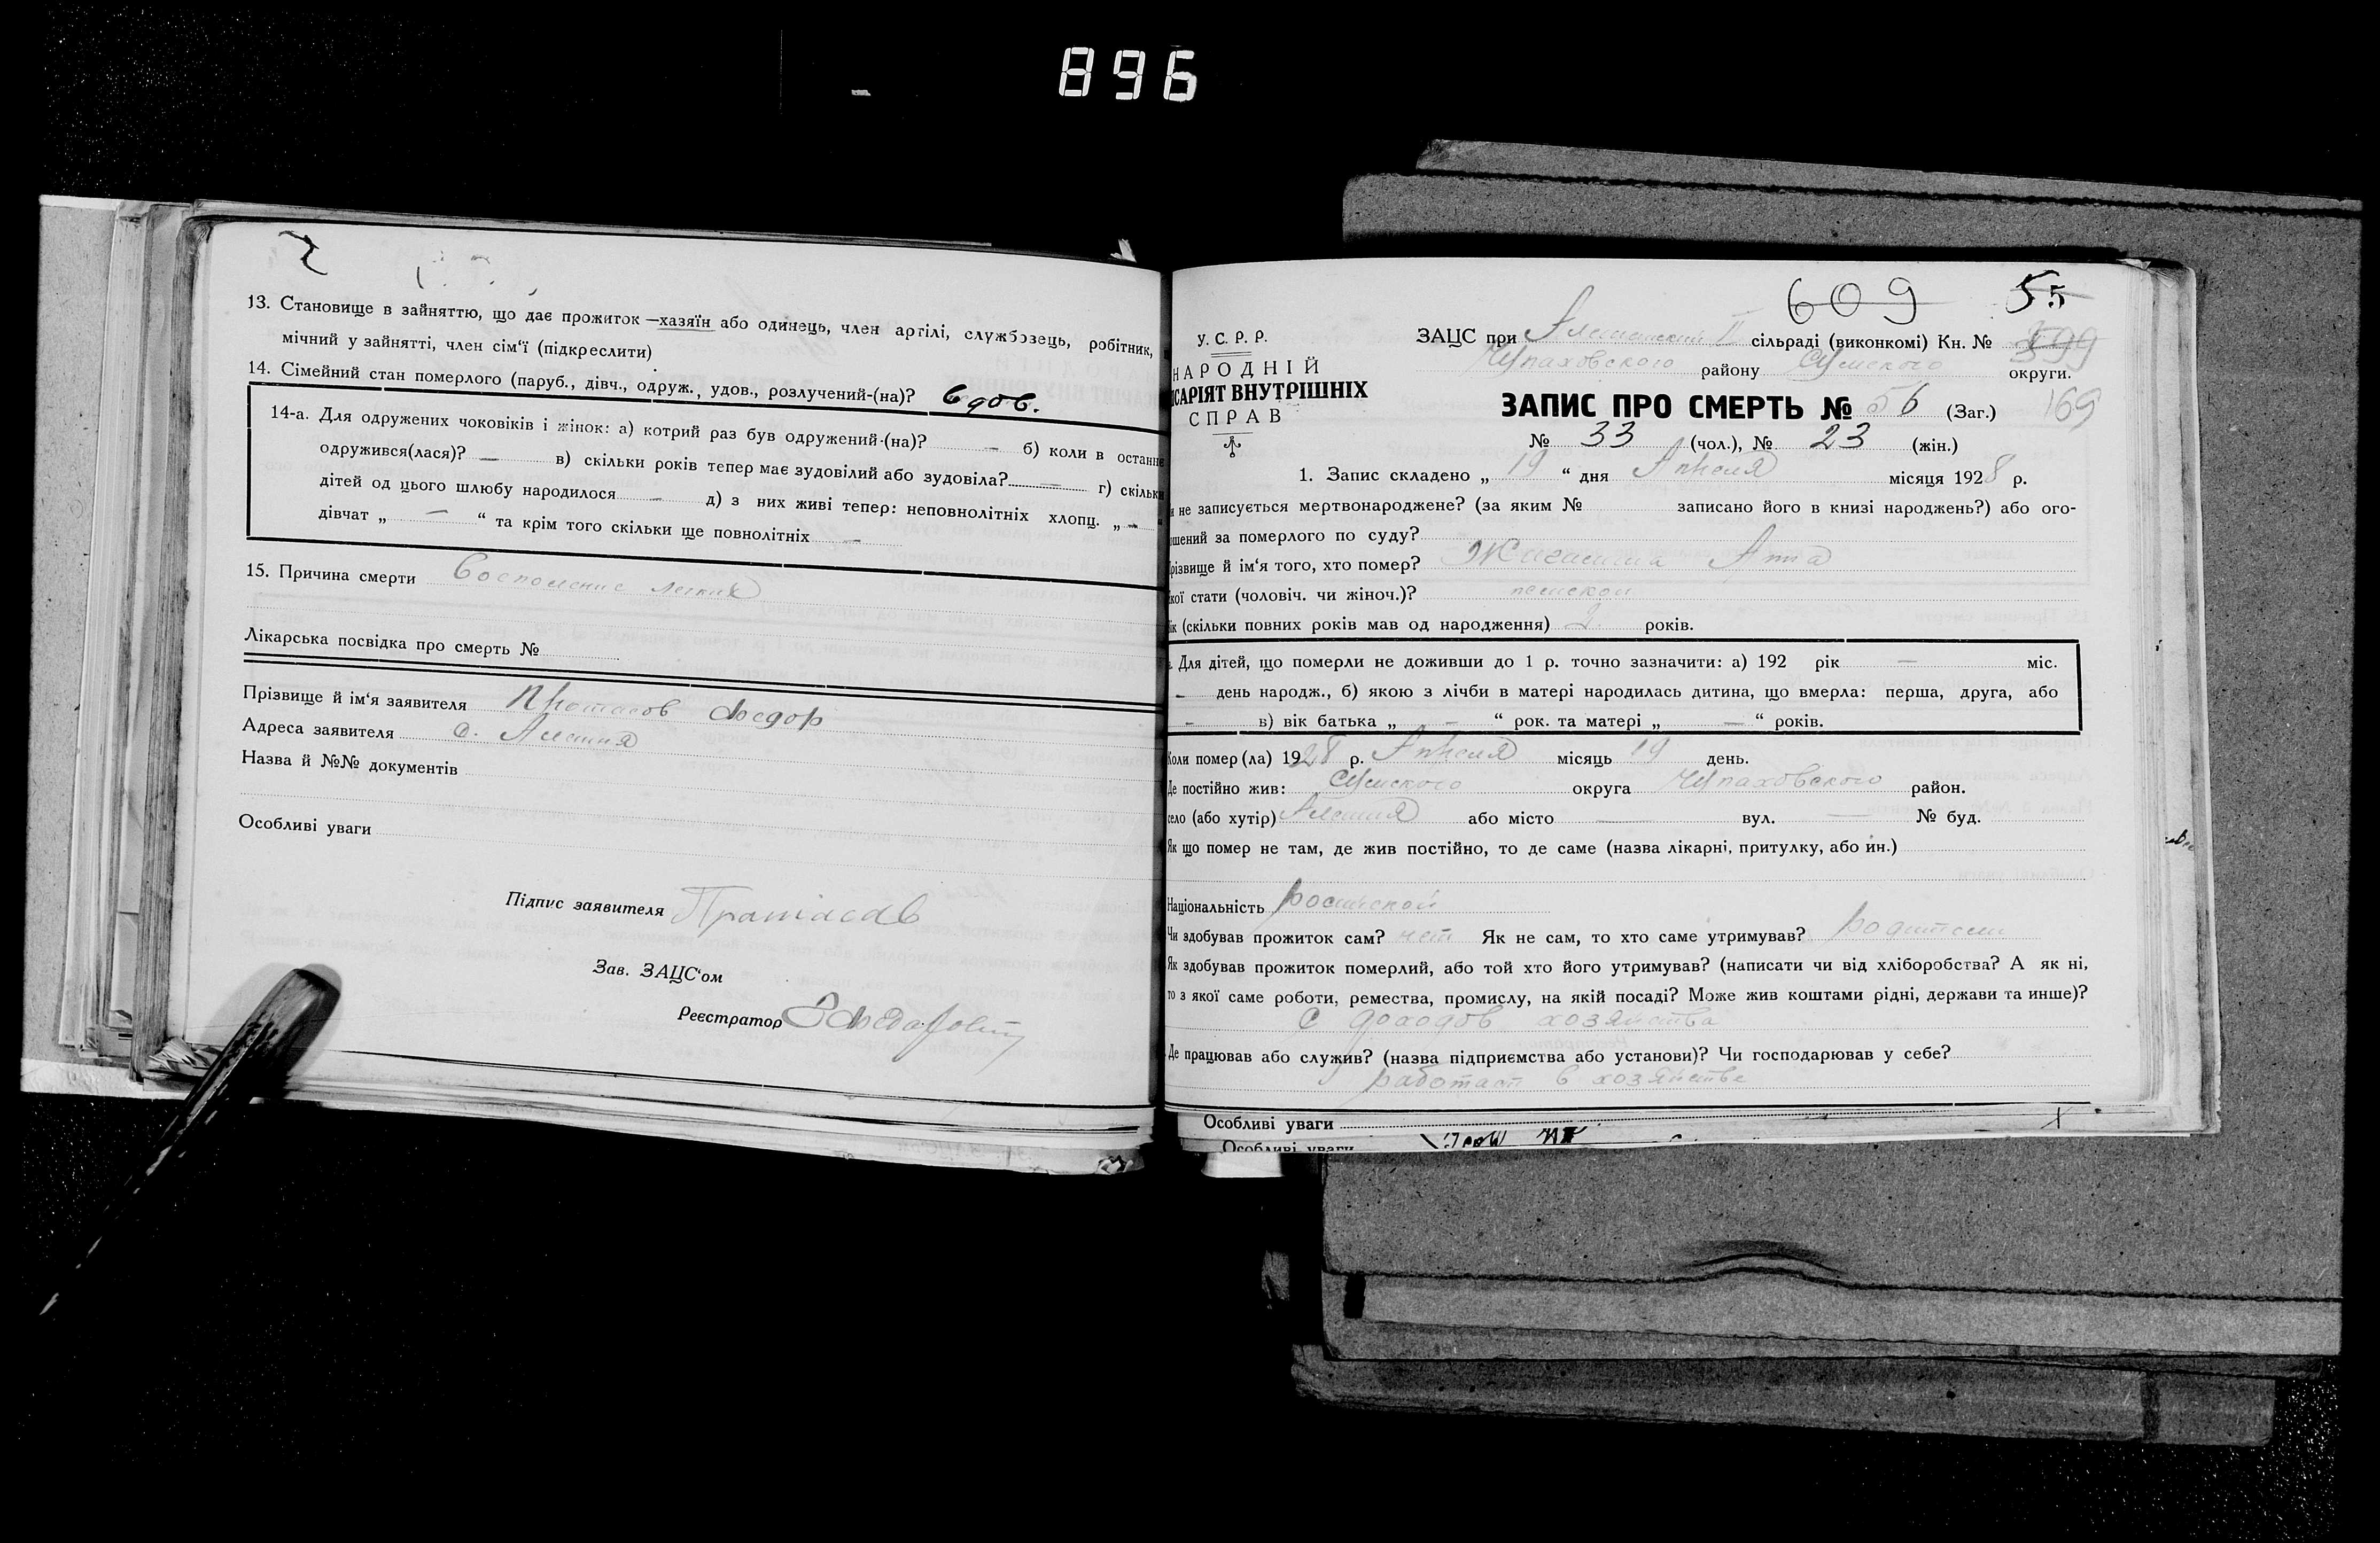 896
13. Становище в зайняттю, що дає прожиток—хазяїн або одинець, член артілі, службовець, робітник,
мічний у зайнятті, член сім'ї (підкреслити)
14. Сімейний стан померлого (паруб., дівч., одруж., удов., розлучений-(на)? вдов.
14-а. Для одружених чоковіків і жінок: а) котрий раз був одружений-(на)? — б) коли в останнє
одружився(лася)? — в) скільки років тепер має зудовілий або зудовіла? — г) скільки
дітей од цього шлюбу народилося — д) з них живі тепер: неповнолітніх хлопц. „ —
дівчат „ — “ та крім того скільки ще повнолітніх —
15. Причина смерти Восполение легких
Лікарська посвідка про смерть №
Прізвище й ім'я заявителя Протасов Федор
Адреса заявителя с. Алешня
Назва й №№ документів
Особливі уваги
Підпис заявителя Пратасав
Зав. ЗАЦС'ом
Реєстратор
609 55
У. С. Р. Р.
НАРОДНІЙ
ІСАРІЯТ ВНУТРІШНІХ
СПРАВ
ЗАЦС при Алешанский II сільраді (виконкомі) Кн. № 599
Чупаховского району Сумского округи.
ЗАПИС ПРО СМЕРТЬ № 56 (Заг.) 169
№ 33 (чол.), № 23 (жін.)
1. Запис складено „ 19 “ дня Апреля місяця 1928 р.
и не записується мертвонароджене? (за яким № записано його в книзі народжень?) або ого-
ошений за померлого по суду?
різвище й ім'я того, хто помер? Анна
кої стати (чоловіч. чи жіноч.)? женской
ік (скільки повних років мав од народження) 2 років.
Для дітей, що померли не доживши до 1 р. точно зазначити: а) 192 рік — міс.
— день народж., б) якою з лічби в матері народилась дитина, що вмерла: перша, друга, або
— в) вік батька „ — “ рок. та матері „ — “ років.
Коли помер (ла) 1928 р. Апреля місяць 19 день.
Де постійно жив: Сумского округа Чупаховского район.
село (або хутір) Алешня або місто — вул. — № буд.
Як що помер не там, де жив постійно, то де саме (назва лікарні, притулку, або ин.)
Національність росийской
Чи здобував прожиток сам? нет Як не сам, то хто саме утримував? родители
Як здобував прожиток померлий, або той хто його утримував? (написати чи від хліборобства? А як ні,
то з якої саме роботи, ремества, промислу, на якій посаді? Може жив коштами рідні, держави та инше)?
С доходов хозяйства
Де працював або служив? (назва підприємства або установи)? Чи господарював у себе?
работает в хозяйстве
Особливі уваги
Особливі уваги